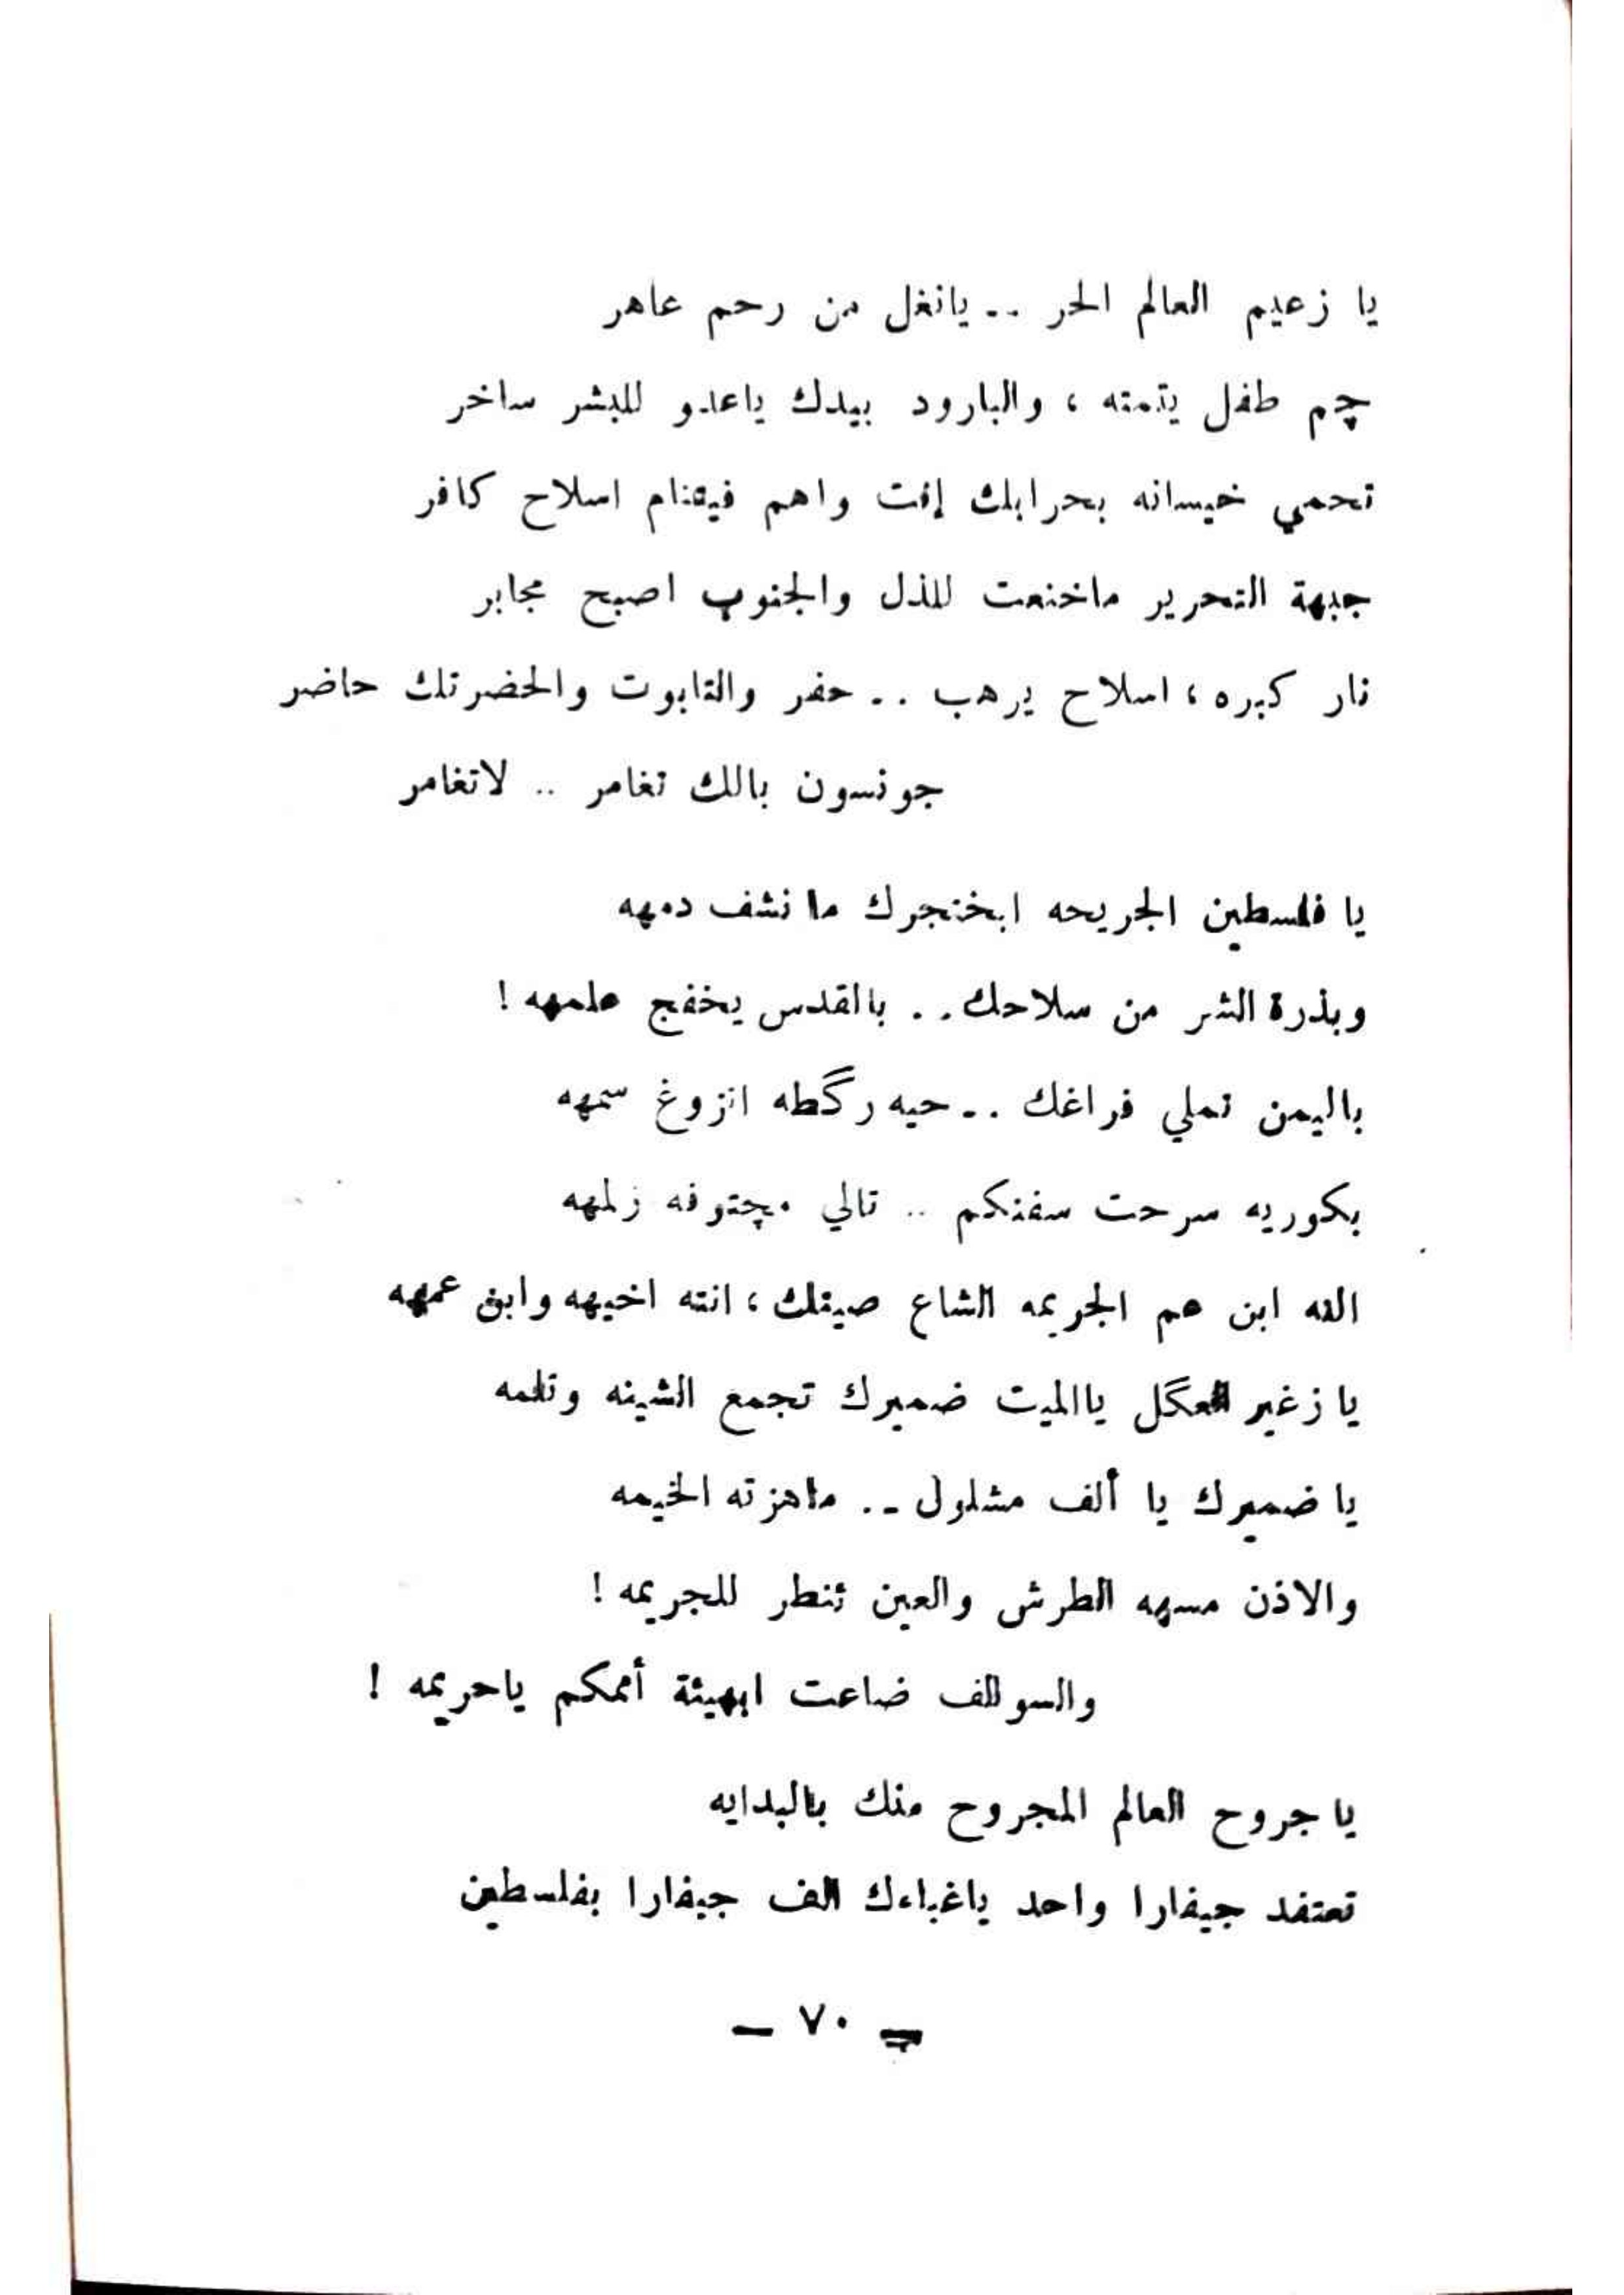 يا زعيم العالم الحر .. يانغل من رحم عاهر
چم طفل يتمته ، والبارود بيدك ياعدو للبشر ساخر
تحمي خيسانه بحرابك إنت واهم فيتنام اسلاح كافر
جبهة التحرير ماخنعت للذل والجنوب اصبح مجابر
نار كبره ، اسلاح يرهب .. حفر والتابوت والحضرتك حاضر
جونسون بالك تغامر .. لاتغامر
يا فلسطين الجريحه ابخنجرك ما نشف دمهه
وبذرة الشر من سلاحك .. باالقدس يخفج علمهه !
باليمن تملي فراغك .. حيه رگطه انزوغ سمهه
بكوريه سرحت سفنكم .. تالي مچتوفه زلمهه
الله ابن هم الجريمه الشاع صيتك ، انته اخيهه وابن عمهه
يا زغير العگل ياالميت ضميرك تجمع الشينه وتلمه
يا ضميرك يا ألف مشلول .. ماهزته الخيمه
والاذن مسهه الطرش والعين تنطر للجريمه !
والسوالف ضاعت ابهيئة أممكم ياحريمه !
يا جروح العالم المجروح منك بالبدايه
تعتقد جيفارا واحد ياغباءك الف جيفارا بفلسطين
— ٧٠ —